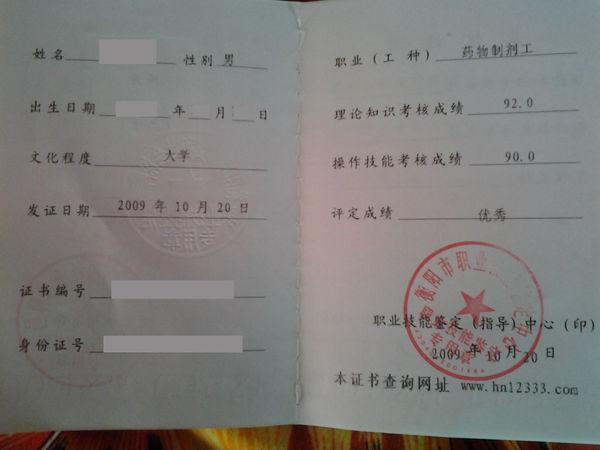 姓名 性别 男
出生日期 年 月 日
文化程度 大学
发证日期 2009 年 10 月 20 日
证书编号
身份证号
职业（工 种） 药物制剂工
理论知识考核成绩 92.0
操作技能考核成绩 90.0
评定成绩 优秀
衡阳市职业
职业技能鉴定（指导）中心（印）
专用章
2009 年 10 月 20 日
本证书查询网址 www.hn12333.com